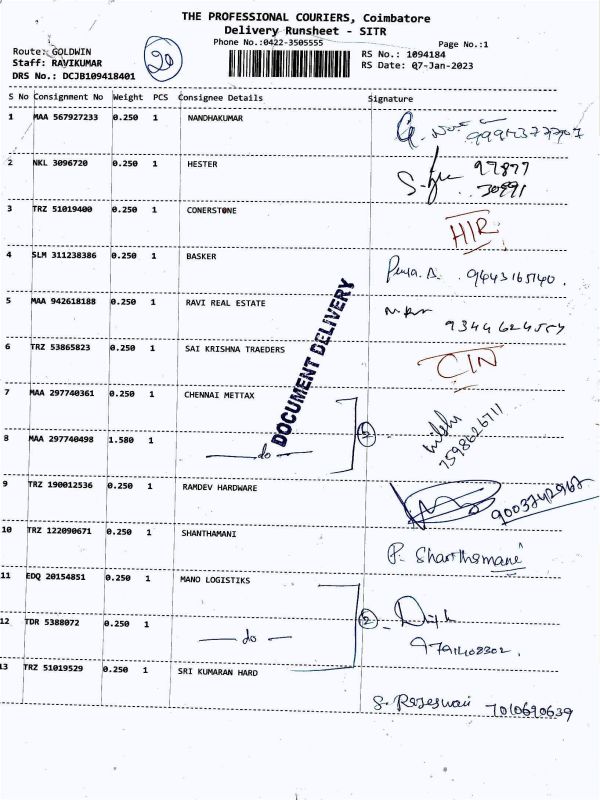 THE PROFESSIONAL COURIERS, Coimbatore
Delivery Runsheet - SITR
Phone No.:0422-3505555
Page No.:1
Route: GOLDWIN
20
RS No.: 1094184
Staff: RAVIKUMAR
RS Date: 07-Jan-2023
DRS No.: DCJB109418401
S No Consignment No Weight PCS Consignee Details Signature
1 MAA 567927233 0.250 1 NANDHAKUMAR
2 NKL 3096720 0.250 1 HESTER 97877
30991
3 TRZ 51019400 0.250 1 CONERSTONE
HIR
4 SLM 311238386 0.250 1 BASKER
9443165140.
5 MAA 942618188 0.250 1 RAVI REAL ESTATE
6 TRZ 53865823 0.250 1 SAI KRISHNA TRAEDERS
CIN
DOCUMENT DELIVERY
7 MAA 297740361 0.250 1 CHENNAI METTAX
7598626711
8 MAA 297740498 1.580 1
do
9 TRZ 190012536 0.250 1 RAMDEV HARDWARE
9003742967
10 TRZ 122090671 0.250 1 SHANTHAMANI
P. Shanthamane
11 EDQ 20154851 0.250 1 MANO LOGISTIKS
12 TDR 5388072 0.250 1
do
2
9791408802.
13 TRZ 51019529 0.250 1 SRI KUMARAN HARD
S. Rajeswari 7010690639